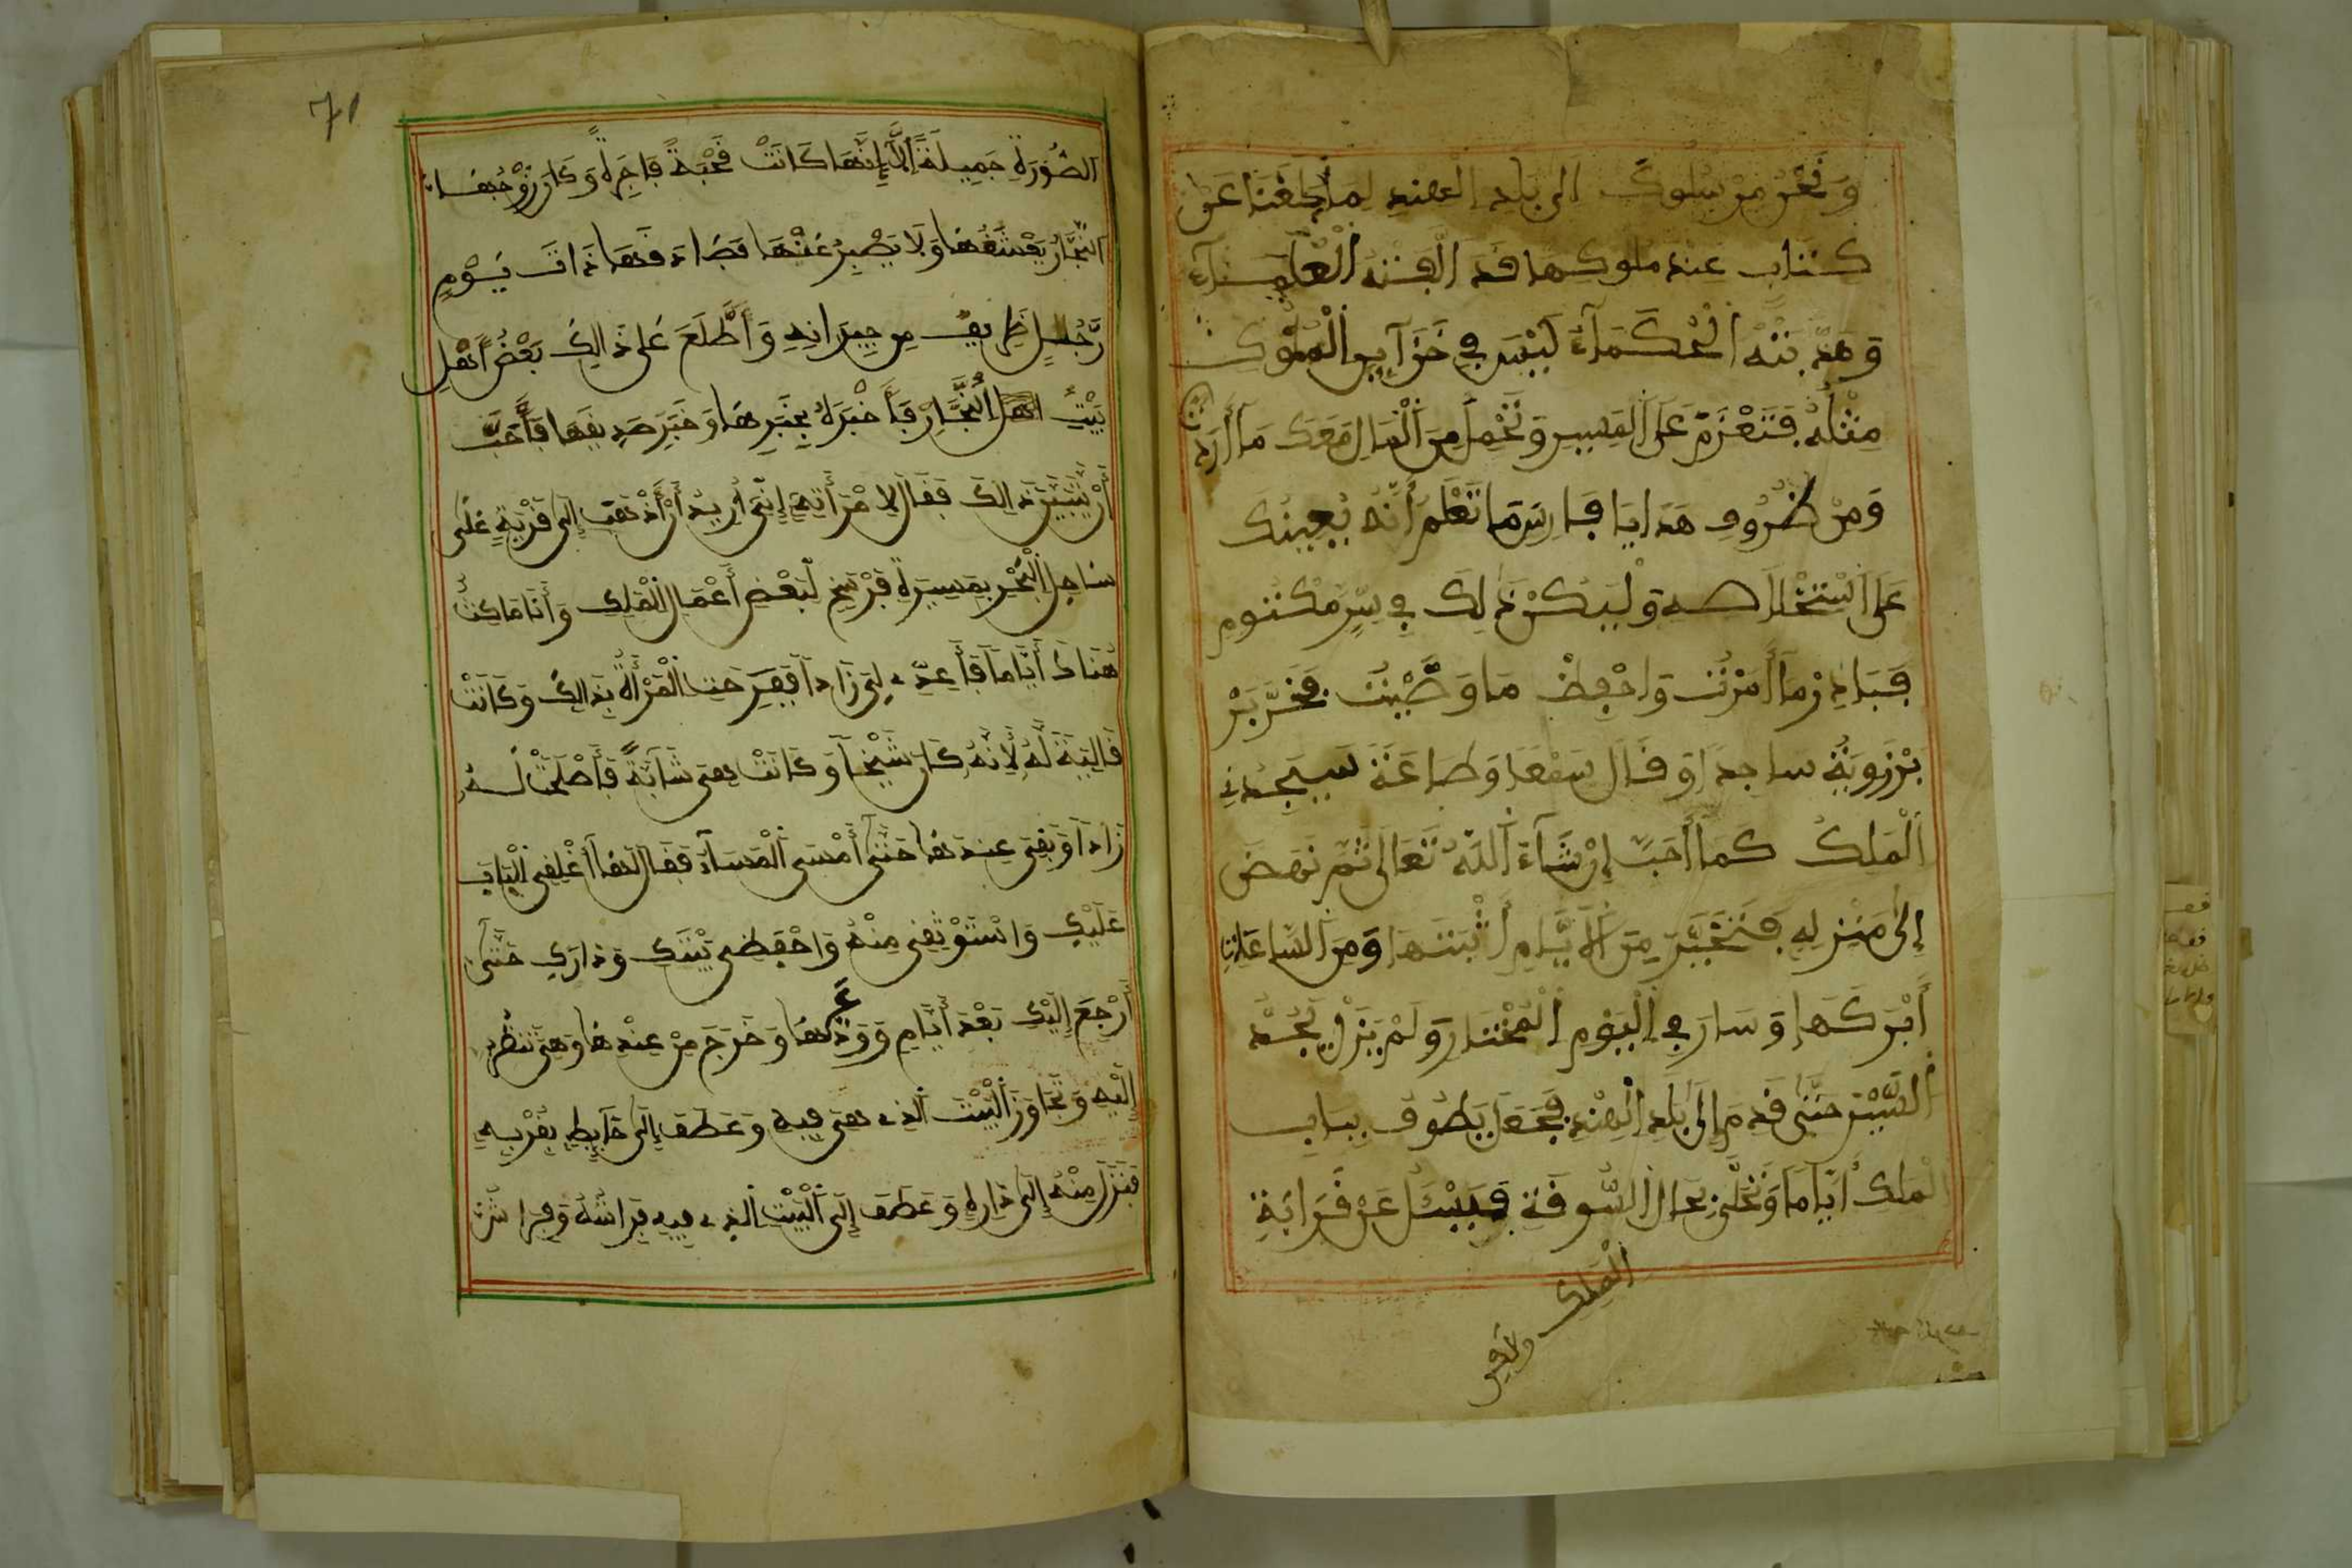 ونحن مرسلوك الى بلد الهند لما بلغنا عن
كتاب عند ملوكها قد الفته العلماء
وهذبته الحكماء ليس في خزآين الملوك
مثله فتعزم على المسير وتحمل من المال معك ما أردت
ومن ظروف هدايا فارس ما تعلم أنه يعينك
على استخلاصه وليكن ذلك في سر مكتوم
فبادر ما أمرت واحفظ ما وصيت فخر بر
برزويه ساجدا وقال سمعا وطاعة سيجدني
الملك كما أحب إن شآء الله تعالى ثم نهض
إلى منزله فتخير من الأيام أثبتها ومن الساعات
أبركها وسار في اليوم المختار ولم يزل يجد
السير حتى قدم إلى بلد الهند فجعل يطوف بباب
الملك أياما وتخلى بحال السوقة فيسئل عن قرابة
الملك
71
الصورة جميلة إلا إنها كانت قحبة فاجرة وكان زوجها
النجار يعشقها ولا يصبر عنها فصادقها ذات يوم
رجل ظريف من جيرانه وأطلع على ذالك بعض أهل
بيت اهل النجار فأخبره بخبرها وخبر صديقها فأحب
أن يتبين ذالك فقال لامرأته إني أريد أن أذهب إلى قرية على
ساحل البحر بمسيرة فرسخ لبعض أعمال الملك وأنا ماكث
هناك أياما فأعدي لي زادا ففرحت المرأة بذالك وكانت
قالية له لأنه كان شيخا وكانت هي شابة فأصلحت له
زادا وبقي عندها حتى أمسى المساء فقال لها أغلقي الباب
عليك واستوثقي منه واحفظي بيتك ودارك حتى
أرجع إليك بعد أيام وودعها وخرج من عندها وهي تنظر
إليه وتجاوز البيت الذي هي فيه وعطف إلى حايط بقربه
فنزل منه إلى داره وعطف إلى البيت الذي فيه فراشه وفراش